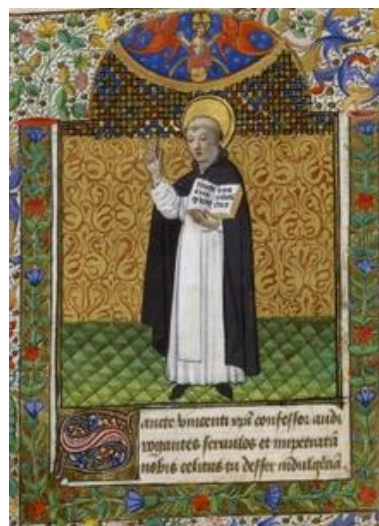 Sancte vincenti xp̄i confessor audi
rogantes servulos et impetratā
nobis celitus tu deffer indulgēciā